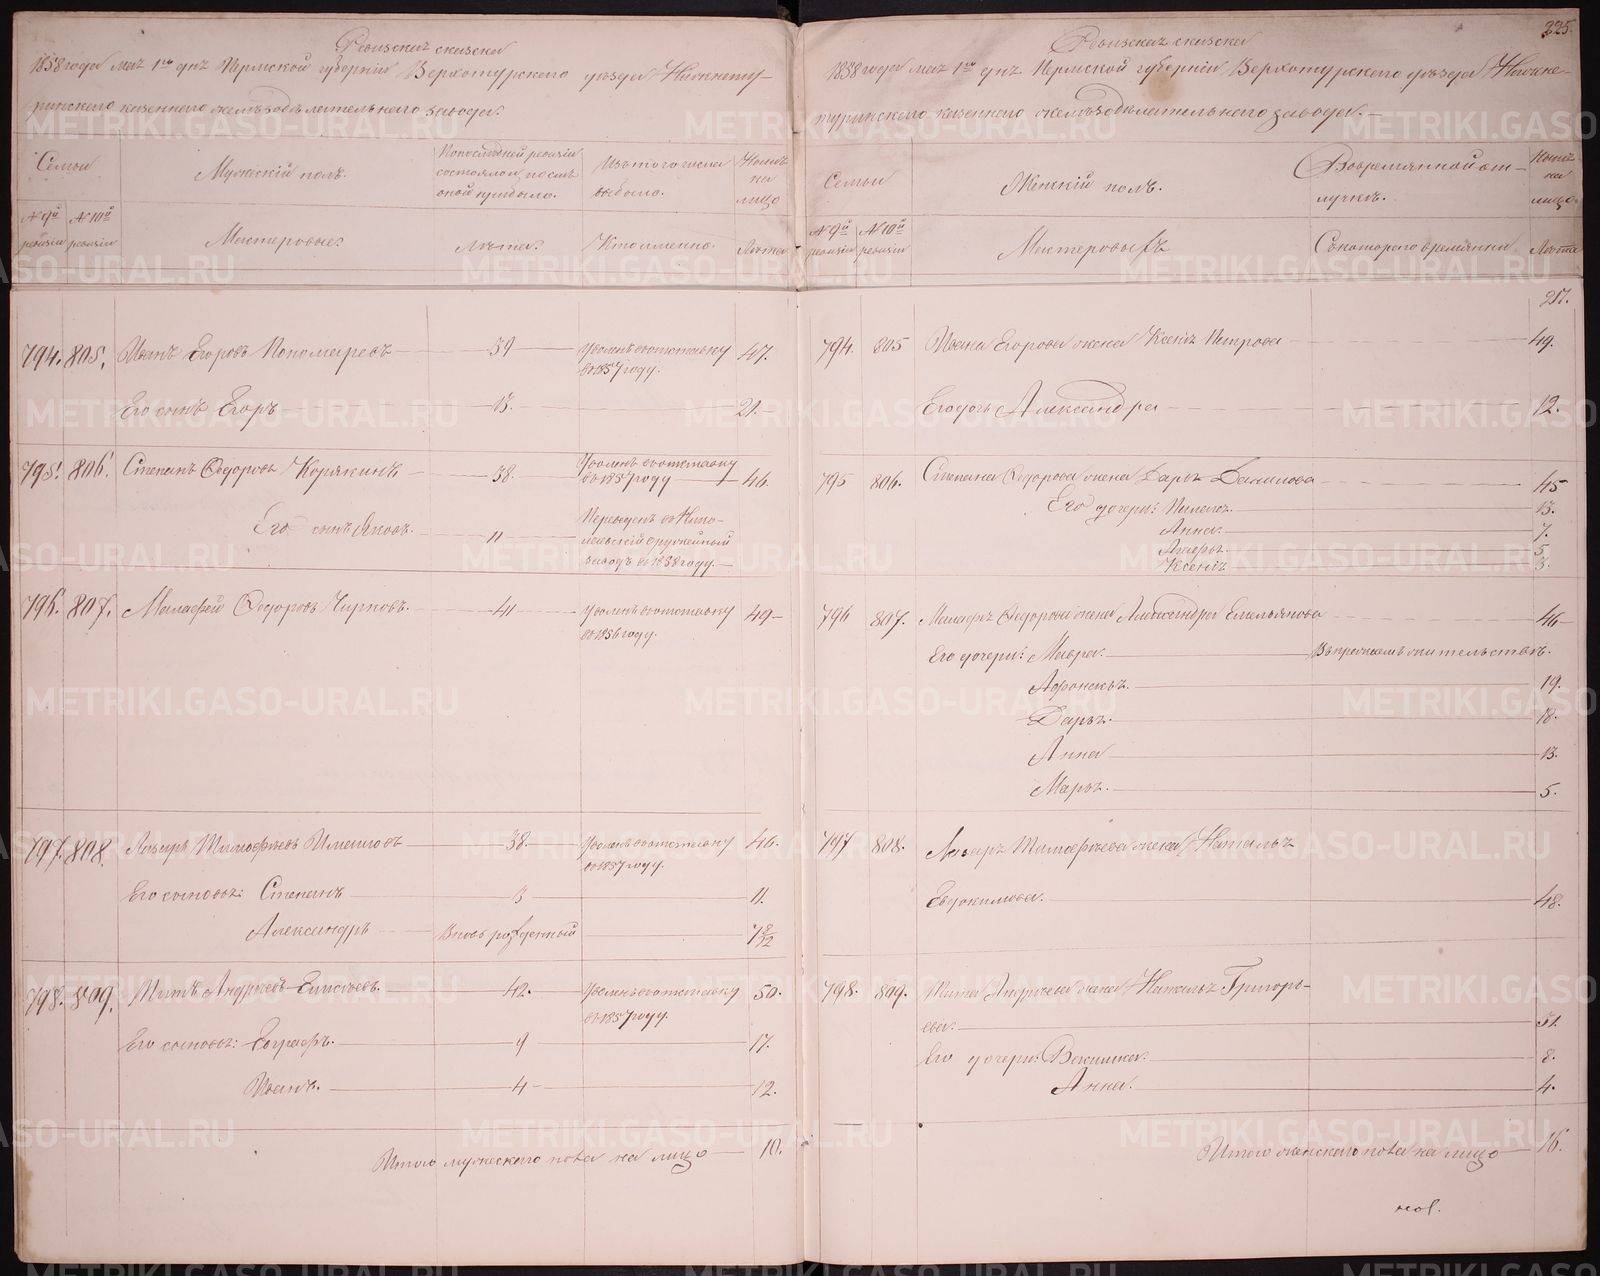 Ревизская сказка
1858 года мая 1го дня Пермской губерніи Верхотурскаго уезда Нижнету-
ринскаго казеннаго железоделательнаго завода.
Семьи
Мужскій полъ.
По последней ревизіи
состояло и после
оной прибыло.
Изъ того числа
выбыло.
Ныне
на
лицо
№ 9й
ревизіи
№ 10й
ревизіи
Мастеровые:
Лета.
Кто именно.
Лета
794. 805. Иванъ Егоровъ Пономаревъ 39 Уволенъ въ отставку 47.
въ 1857 году.
Его сынъ Егоръ 13. 21.
795. 806. Степанъ Федоровъ Корякинъ 38. Уволенъ въ отставку
въ 1857 году 46.
Его сынъ Яковъ. 11 Переведенъ въ Нико-
лаевскій оружейный
заводъ въ 1858 году.
796. 807. Малафей Федоровъ Чирковъ. 41 Уволенъ въ отставку 49
въ 1856 году.
797. 808. Лазарь Тимофеевъ 38. Уволенъ въ отставку 46.
въ 1857 году.
Его сыновья: Степанъ 3 11.
Александръ Вновь рожденный 7 8/12
798. 809. Титъ Андреевъ Елисеевъ. 42. Уволенъ въ отставку 50.
въ 1857 году.
Его сыновья: Евграфъ. 9 17.
Иванъ. 4 12.
Итого мужескаго пола на лицо 10.
225.
Ревизская сказка
1858 года мая 1го дня Пермской губерніи Верхотурскаго уезда Нижне-
туринскаго казеннаго железоделательнаго завода.
Семьи
Женскій полъ.
Во временной от-
лучке.
Ныне
на
лицо.
№ 9й
ревизіи
№ 10й
ревизіи
Мастеровыхъ
Съ котораго времяни
Лета
217.
794. 805 Ивана Егорова жена Ксенія Петрова 49.
Его дочь Александра 12.
795 806. Степана Федорова жена Дарья Данилова 45
Его дочери: Пелагея. 13.
Анна. 7.
5.
Ксенія 3.
796 807. Малафея Федорова жена Александра Емельянова 46
Его дочери: Мавра.
Афонасья. 19.
Дарья. 18.
Анна 13.
Марья. 5.
797 808. Лазаря Тимофеева жена Наталья
Евдокимова. 48.
798. 809. Тита Андреева жена Наталья Григорь-
ева. 51.
Его дочери: 8.
Анна. 4.
Итого женскаго пола на лицо 16.